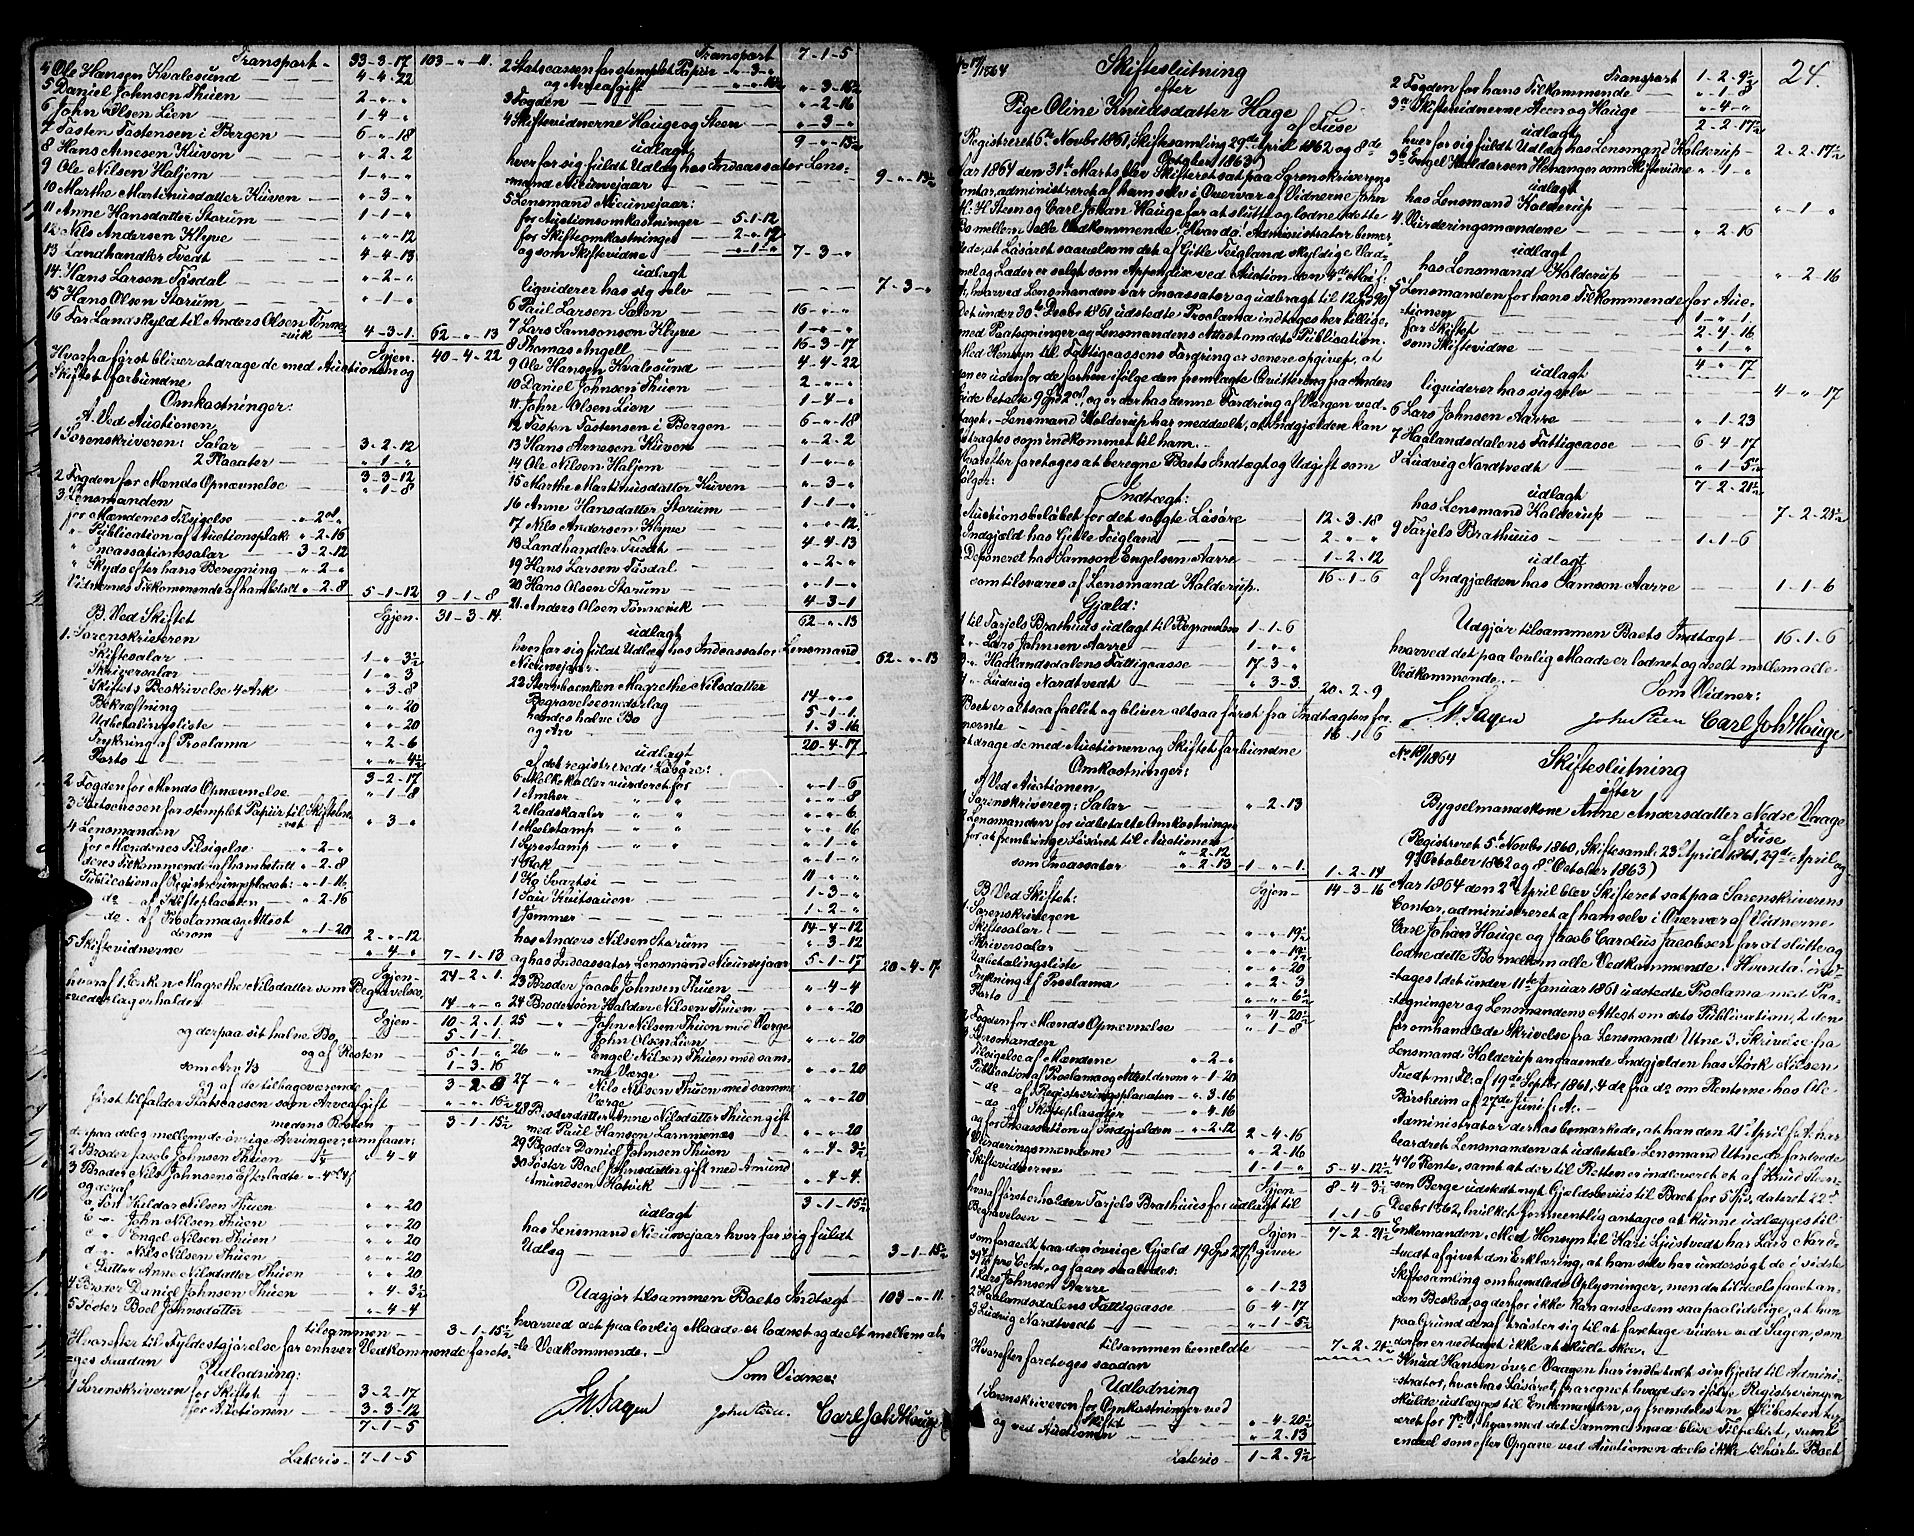 Transport - 33-3-17 103-"-11.
4 Ole Hansen Kvalesund 4-4-22
5 Daniel Johnsen Thuen 2-"-"
6 John Olsen Lien 1-4-"
7 Tosten Tostensen i Bergen 6-"-18
8 Hans Arnesen Kuven "-2-2
9 Ole Nilsen Haljem 1-"-"
10 Marthe Martinusdatter Kuven "-3-"
11 Anne Hansdatter Storum 1-1-"
12 Nils Andersen Klyve "-"-12
13 Landhandler Tvedt 4-4-13
14 Hans Larsen Tøsdal "-2-"
15 Hans Olsen Storum "-1-"
16 For Landskyld til Anders Olsen Tønne-
vik 4-3-1. 62-"-13
Igjen- 40-4-22
Hvorfra først bliver at drage de med Auctionen og
Skiftet forbundne
Omkostninger:
A. Ved Auctionen
1 Sorenskriveren: Salar 3-2-12
2 Placater "-1-"
3-3-12
2 Fogden for Mænds Opnævnelse "-1-8
3 Lensmanden
for Mændenes Tilsigelse
" Publication af Auctionsplak: "-2-16
" Incassationssalar 3-2-12
" Skyds efter hans Beregning "-2-"
Vidnernes Tilkommende af ham betalt "-2-8 5-1-12 9-1-8
B. Ved Skiftet Igjen- 31-3-14.
1. Sorenskriveren
Skiftesalar 1-"-3½
Skriversalær 1-"-3
Skiftets Beskrivelse 4 Ark "-3-8
Bekræftning "-"-20
Udbetalingsliste "-"-20
Trykning af Proclama "-2-6
Porto "-"-4½
3-2-17
2 Fogden for Mænds Opnævnelse "-1-8
3 Statscassen for stemplet Papiir til Skiftebre-
vet "-3-"
4 Lensmanden
for Mændenes Tilsigelse "-2-"
deres Tilkommende af ham betalt "-2-8
Publication af Registreringsplacat: "-1-16
do - af Skifteplacaten "-2-16
-do- af Proclama og Attest
derom "-1-20 2-"-12
5 Skiftevidnerne "-4-" 7-1-13
Igjen- 24-2-1.
hvoraf 1. Enken Magrethe Nilsdatter som Begravelses
vederlag erholder 14-"-"
Igjen- 10-2-1.
og derpaa sit halve Bo 5-1-1.
og af Resten 5-1-"
som Arv 1/3 1-3-16
og af de tilbageværende 3-2-8
først tilfalder Statscassen som Arveafgift "-"-16½
medens Resten 3-1-15½
derpaa deles mellem de øvrige Arvinger, som faaer:
2 Broder Jacob Johnsen Thuen "-4-4
3 Broder Nils Johnsens Efterladte "-4
og deraf
a, Søn Haldor Nilsen Thuen "-"-20
b -"- John Nilsen Thuen "-"-20
c " Engel Nilsen Thuen "-"-20
d " Nils Nilsen Thuen "-"-20
e Datter Anne Nilsdatter Thuen "-"-20
4 Broder Daniel Johnsen Thuen "-4-3½
5 Søster Boel Johnsdatter "-4-4
tilsammen 3-1-15½
Hvorefter til Fyldestgjørelse for enhver Vedkommende foreto-
ges saadan
Udlodning:
1 Sorenskriveren for Skiftet 3-2-17
for Auctionen 3-3-12
7-1-5
Lateris 7-1-5
Transport 7-1-5
2 Statscassen for stemplet Papiir "-3-"
og Arveafgift "-"-16½ "-3-16½
3 Fogden "-2-16
4 Skiftevidnerne Hauge og Steen "-3-"
udlagt 9-"-13½
hver for sig fuldt Udlæg hos Incassator Lens-
mand Nieuwejaar 9-"-13½
5 Lensmand Nieuwejaar:
for Auctionsomkostninger 5-1-12
for Skifteomkostninger 2-"-12
og som Skiftevidne "-1-" 7-3-"
udlagt
liquiderer hos sig selv 7-3-"
6 Paul Larsen Solen 16-"-"
7 Lars Samsonsen Klyve 1-"-"
8 Thomas Angell 16-3-17
9 Ole Hansen Kvalesund 4-4-22
10 Daniel Johnsen Thuen 2-"-"
11 John Olsen Lien 1-4-"
12 Tosten Tostensen i Bergen 6-"-18
13 Hans Arnesen Kuven "-2-2
14 Ole Nilsen Haljem 1-"-"
15 Marthe Martinusdatter Kuven "-3-"
16 Anne Hansdatter Storum 1-1-"
17 Nils Andersen Klyve "-"-12
18 Landhandler Tvedt 4-4-13
19 Hans Larsen Tøsdal "-2-"
20 Hans Olsen Storum "-1-"
21 Anders Olsen Tønnevik 4-3-1
udlagt 62-"-13
hver for sig fuldt Udlæg hos Incassator Lensmand
Nieuwejaar 62-"-13
22 Stervboenken Magrethe Nilsdatter
Begravelsesvederlag 14-"-"
hendes halve Bo 5-1-1.
og Arv 1-3-16
udlagt 20-4-17
af det registrerede Løsøre:
6 Melkekoller vurderet for "-1-6
1 Amker " " "-"-8
2 Madskaaler " " "-"-6
1 Meelstamp " " "-"-16
1 Syrestamp " " "-1-"
1 Rok "-1-"
1 Ko Svartsi 11-"-"
1 Sau Kvitsauen 1-3-"
1 Gjømmer 1-2-"
14-4-12
hos Anders Nilsen Storum "-3-12
og hos Incassator Lensmand Nieuwejaar 5-1-17 20-4-17
23 Broder Jacob Johnsen Thuen "-4-4
24 Brodersøn Haldor Nilsen Thuen "-"-20
25 -"- John Nilsen Thuen med Værge
John Olsen Lien "-"-20
26 -"- Engel Nilsen Thuen med sam-
me Værge "-"-20
27 -"- Nils Nilsen Thuen med samme
Værge "-"-20
28 Broderdatter Anne Nilsdatter Thuen gift
med Paul Hansen Lammenæs "-"-20
29 Broder Daniel Johnsen Thuen "-4-3½
30 Søster Boel Johnsdatter gift med Amund
Amundsen Hatvik "-4-4
udlagt 3-1-15½
hos Lensmand Nieuwejaar hver for sig fuldt
Udlæg 3-1-15½
Udgjør tilsammen Boets Indtægt 103-"-11.
hvorved det paa lovlig Maade er lodnet og deelt mellem al-
le Vedkommende.
Som Vidner:
Sagen John Steen. Carl Joh Houge
24.
No 17/1864 Skifteslutning
efter
Pige Oline Knudsdatter Hage
af Fuse
(Registreret 6te Novbr 1861, Skiftesamling 29de April 1862 og 8de
October 1863)
Aar 1864 den 31te Marts blev Skifteret sat paa Sorenskriverens
Contor, administreret af ham selv i Overvær af Vidnerne John
H. Steen og Carl Johan Hauge for at slutte og lodne dette
Bo mellem alle Vedkommende. Hvorda: Administrator bemær-
kede, at Løsøret saavelsom det af Gitle Teigland skyldige Vad-
mel og Læder er solgt som Appendix ved Auction den
hvorved Lensmanden var Incassator og udbragt til 12
Det under 30te Decbr 1861 udstedte Proclama indtages her tillige-
med Paategninger og Lensmandens Attest om dets Publication.
Med Hensyn til Fattigcassens Fordring er senere opgivet, at
den er udenfor de forhen ifølge den fremlagte Qvittering fra Anders
betalte 9 og er der hos denne Fordring af Værgen ved-
taget. Lensmand Holderup har meddeelt, at Indgjælden kan
betragtes som indkommet til ham.
Hvorefter foretoges at beregne Boets Indtægt og Udgift som
følger:
Indtægt:
Auctionsbeløbet for det solgte Løsøre 12-3-18
Indgjæld hos Gitle Teigland 2-"-"
Deponeret hos Samson Engelsen Aarre 1-2-12
som tilsvares af Lensmand Holderup. 16-1-6
Gjæld:
1 til Torjels Brathuus udlagt til Begravelsen 1-1-6
2 " Lars Johnsen Aarre 1-"-"
3 " Haalandsdalens Fattigcasse 17-3-"
4 " Ludvig Nordtvedt "-3-3. 20-2-9
Boet er altsaa fallit og bliver altsaa først fra Indtægten for-
nævnte 16-1-6
at drage de med Auctionen og Skiftet forbundne
Omkostninger:
A Ved Auctionen
1 Sorenskriveren: Salar "-2-13
2 Lensmanden for udbetalte Omkostninger
for at frembringe Løsøret til Auctionen
"-2-12
som Incassator "-2-13 1-"-1. 1-2-14
B. Ved Skiftet: Igjen- 14-3-16
1 Sorenskriveren
Skiftesalar "-"-19½
Skriversalar "-"-19½
Udbetalingsliste "-"-20
Trykning af Proclama "-2-3
Porto "-"-6½
"-4-20½
2 Fogden for Mænds Opnævnelse "-1-8
3 Lensmanden
Tilsigelse af Mændene "-2-"
Publication af Proclama og Attest derom "-1-20
-do- af Registreringsplacaten "-3-16
-do- af Skifteplacater "-4-16
og for Incassation af Indgjælden "-2-12 2-4-16
4 Vurderingsmændene "-2-16
5 Skiftevidnerne 1-1-" 5-4-12½
Igjen- 8-4-3½
hvoraf først erholder Torjels Brathuus for udlagt til
Begravelsen 1-1-6
Igjen- 7-2-21½
som fordeelt paa den øvrige Gjæld 19 giver
pro Cent, og faaer saaledes:
1 Lars Johnsen Aarre "-1-23
2 Haalandsdalens Fattigcasse 6-4-17
3 Ludvig Nordtvedt "-1-5½
tilsammen bemeldte 7-2-21½
Hvorefter foretoges saadan
Udlodning
1 Sorenskriveren for Omkostninger ved
Skiftet "-4-20½
og ved Auctionen "-2-13
Lateris 1-2-9½
Transport 1-2-9½
2 Fogden for hans Tilkommende "-1-8
3a Skiftevidnerne Steen og Hauge "-4-"
udlagt 2-2-17½
hver for sig fuldt Udlæg hos Lensmand Holderup 2-2-17½
3b Engel Haldorsen Henanger som Skiftevidne "-1-"
udlagt
hos Lensmand Holderup "-1-"
4 Vurderingsmændene "-2-16
udlagt
hos Lensmand Holderup "-2-16
5 Lensmanden for hans Tilkommende for Auc-
tionen 1-"-1.
for Skiftet 2-4-16
som Skiftevidne "-1-"
udlagt 4-"-17
liquiderer hos sig selv 4-"-17
6 Lars Johnsen Aarre "-1-23
7 Haalandsdalens Fattigcasse 6-4-17
8 Ludvig Nordtvedt "-1-5½
udlagt 7-2-21½
hos Lensmand Holderup 7-2-21½
9 Torjels Brathuus 1-1-6
udlagt
af Indgjælden hos Samson Aarre 1-1-6
Udgjør tilsammen Boets Indtægt 16-1-6
hvorved det paa lovlig Maade er lodnet og deelt mellem alle
Vedkommende.
Som Vidner:
Sagen John Steen Carl Joh Houge
No 18/1864 Skifteslutning
efter
Bygselmandskone Anne Andersdatter Nedre Vaage
af Fuse
(Registreret 5te Novbr 1860, Skiftesaml: 23de April 1861, 29de April og
9de October 1862 og 8de October 1863)
Aar 1864 den 2den April blev Skifteret sat paa Sorenskriverens
Contor, administreret af ham selv i Overvær af Vidnerne
Carl Johan Houge og Jacob Carolus Jacobsen for at slutte og
lodne dette Bo mellem alle Vedkommende. Hvorda: ind-
tages 1. det under 11te Januar 1861 udstedte Proclama med Paa-
tegninger og Lensmandens Attest om dets Publication, 2 den
foromhandlede Skrivelse fra Lensmand Utne 3. Skrivelse fra
Lensmand Holderup angaaende Indgjælden hos Størk Nilsen
Tvedt m: Fl. af 19de Septbr 1861, 4 de fra do om Renterne hos Ole
Børsheim af 27de Juni f. A.
Administrator derhos bemærkede, at han den 21de April f. A. har
beordret Lensmanden at udbetale Lensmand Utne de fordrede
4% Rente, samt at der til Retten er indleveret et af Knud Hen-
sen Berge udstedt nyt Gjældsbeviis til Boet for 5 Spd, dateret 22de
Decbr 1862, hvilket formentlig antages at kunne udlægges til
Enkemanden. Med Hensyn til Kari Ljøstvedt har Lars Nord-
tvedt afgivet den Erklæring, at han selv har undersøgt de i sidste
Skiftesamling omhandlede Oplysninger, men deltidels faaet an-
den Besked, og derfor ikke kan ansee dem saa paalidelige, at han
paa Grund deraf trøster sig til at foretage videre ved Sagen, som
derfor er vedtaget ikke at skulle skee.
Knud Hansen øvre Vaagen har indbetalt sin Gjæld til Admini-
strator, hvorhos Løsøret, fraregnet hvad der ifølge Registreringen
skulde udlægges til Enkemanden, og fremdeles en Slibesteen tax-
eret for , hvormed det Sammes maa blive Tilfældet, samt
endeel som efter Opgave ved Auctionen deels ikke tilhørte Boet